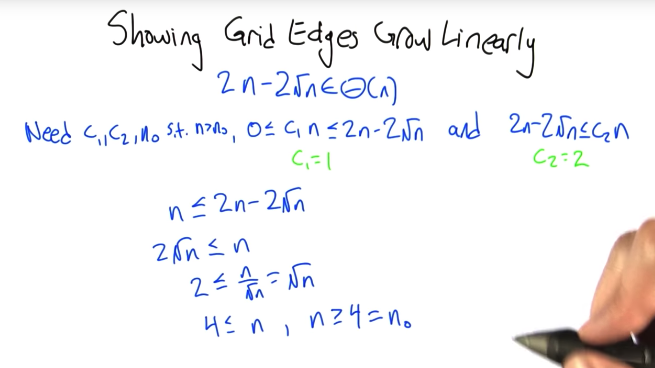 Showing Grid Edges Grow Linearly
2n-2√n∈Θ(n)
Need c₁,c₂,n₀ s.t. n>n₀, 0≤c₁n≤2n-2√n and 2n-2√n≤c₂n
c₁=1 c₂=2
n≤2n-2√n
2√n≤n
2≤n/√n=√n
4≤n, n≥4=n₀